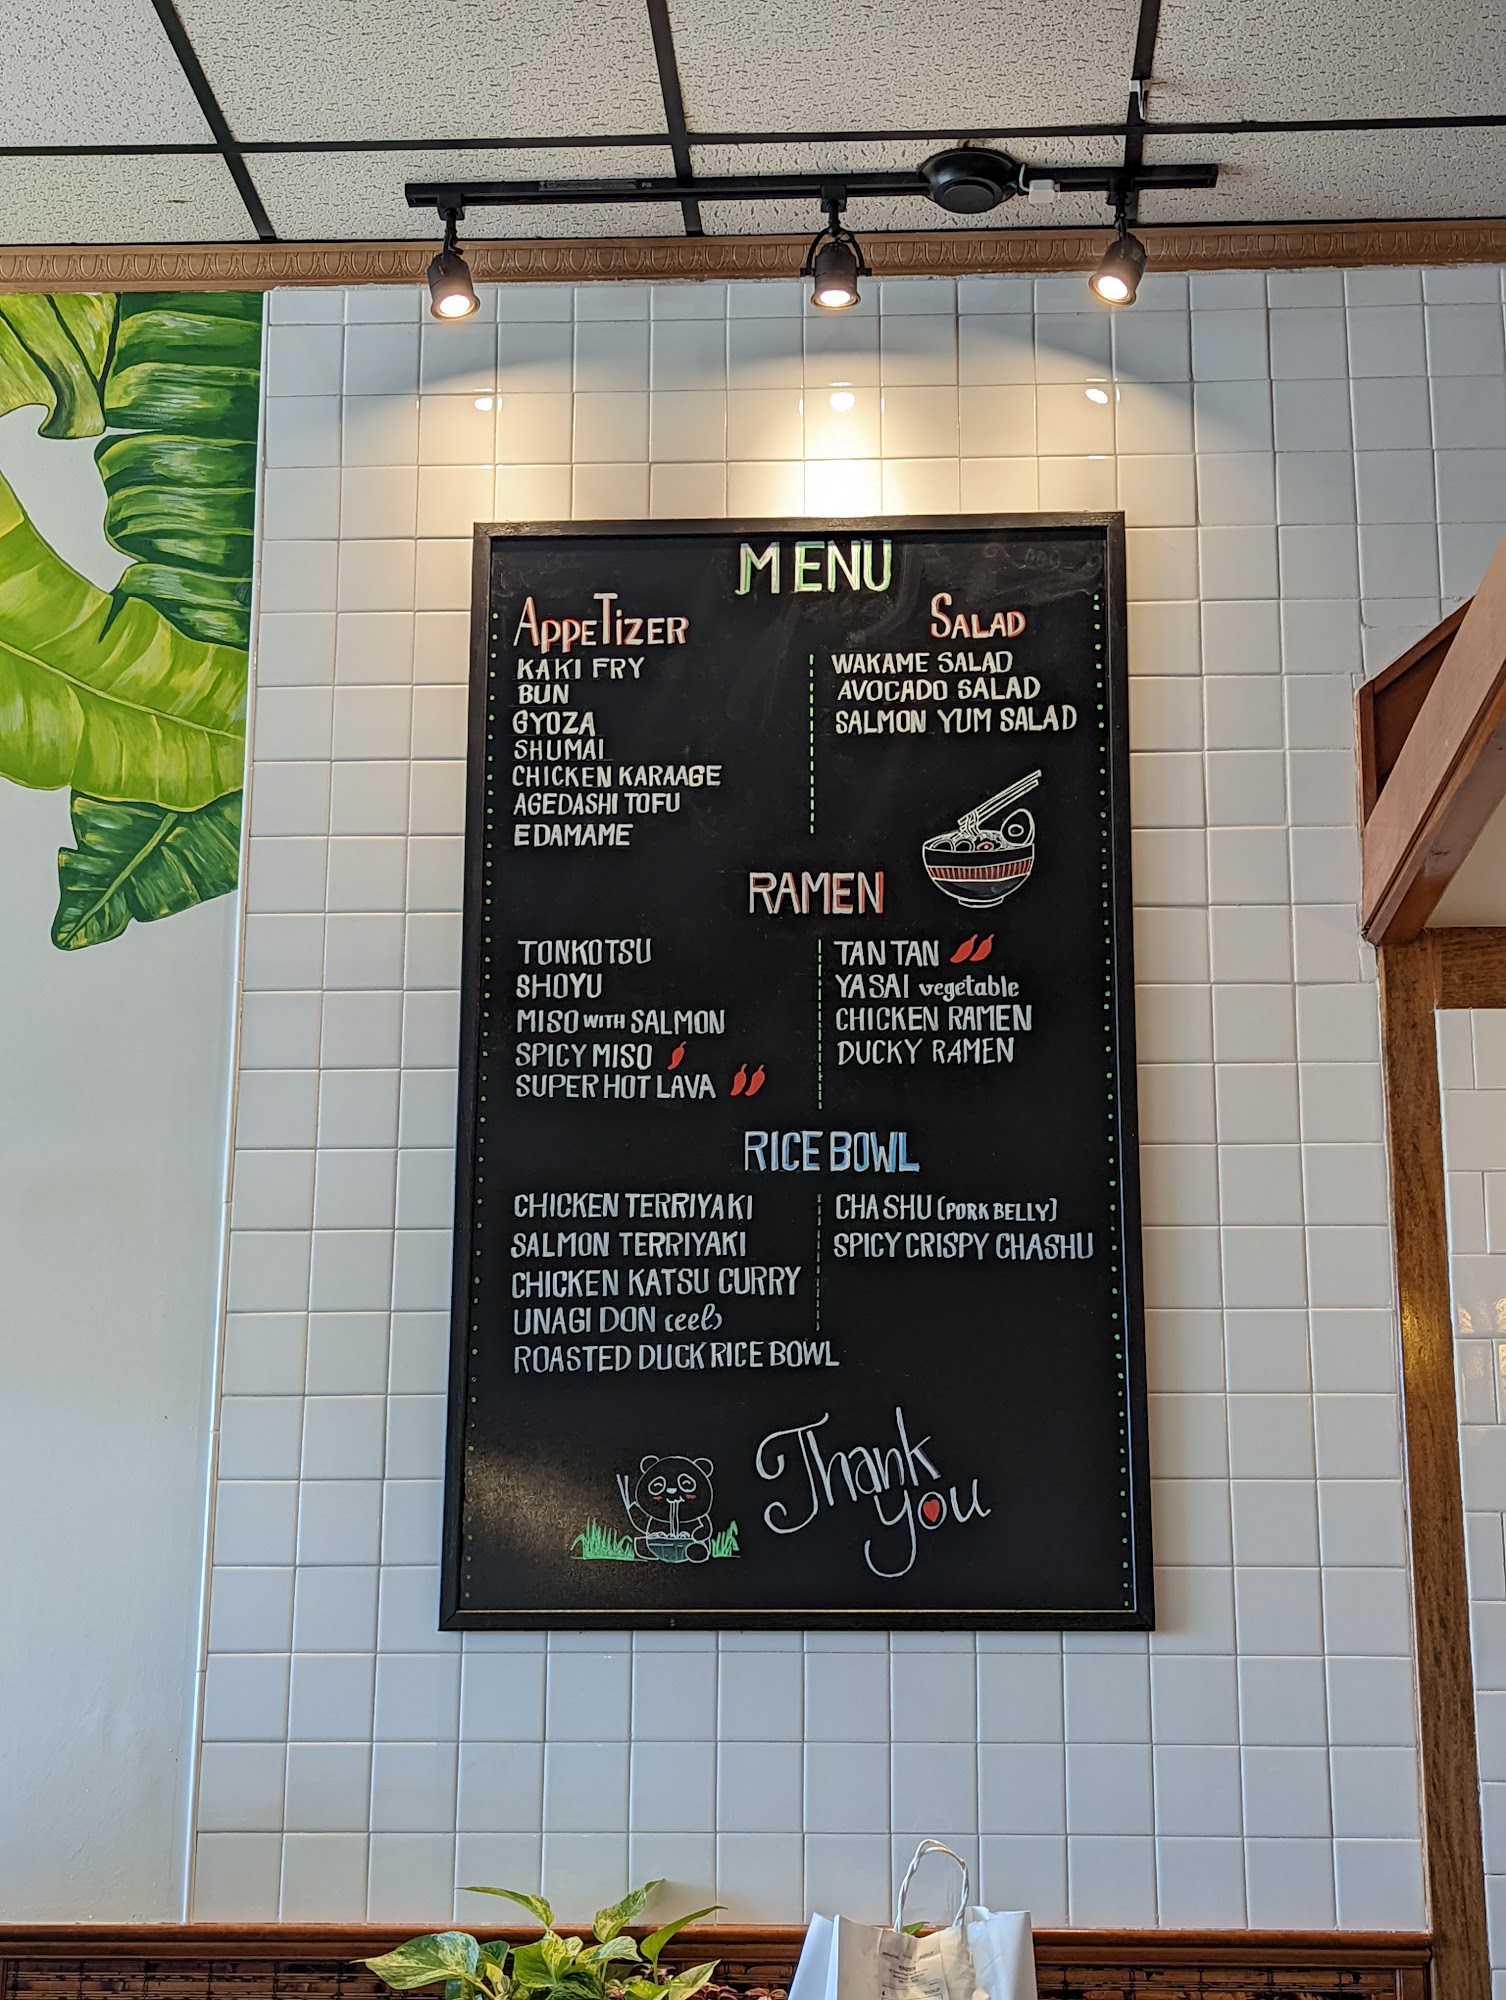 MENU
APPETIZER
KAKI FRY
BUN
GYOZA
SHUMAI
CHICKEN KARAAGE
AGEDASHI TOFU
EDAMAME
SALAD
WAKAME SALAD
AVOCADO SALAD
SALMON YUM SALAD
RAMEN
TONKOTSU
SHOYU
MISO WITH SALMON
SPICY MISO
SUPER HOT LAVA
TAN TAN
YASAI vegetable
CHICKEN RAMEN
DUCKY RAMEN
RICE BOWL
CHICKEN TERRIYAKI
SALMON TERRIYAKI
CHICKEN KATSU CURRY
UNAGI DON (eel)
ROASTED DUCK RICE BOWL
CHASHU (PORK BELLY)
SPICY CRISPY CHASHU
Thank
you